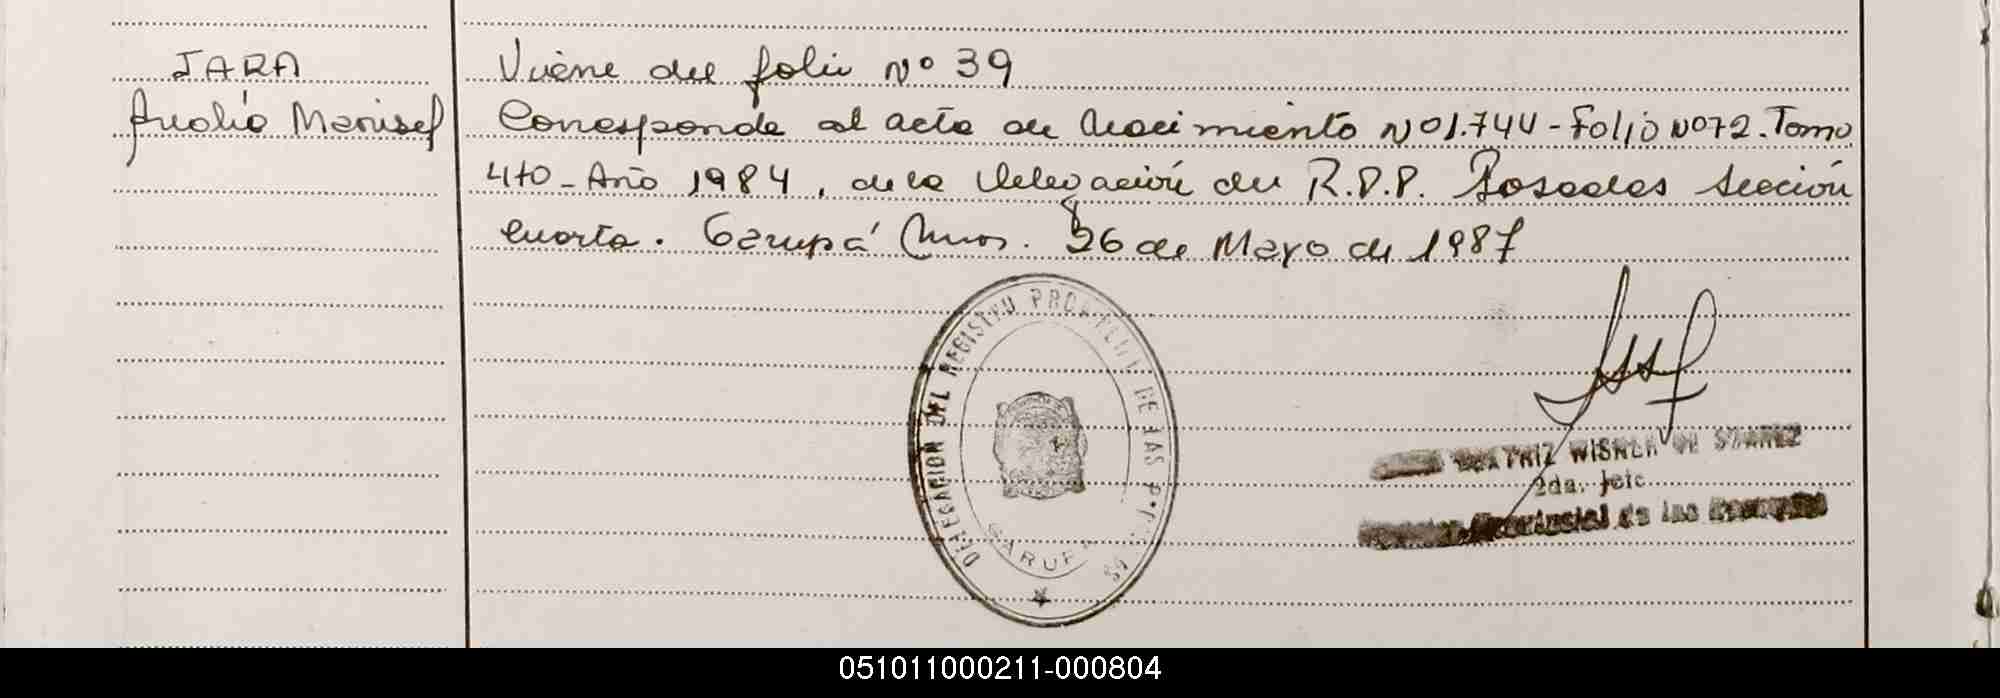 JARA
Marisel
Viene del folio Nº 39
Corresponde al acta de Nacimiento Nº 1.744 - Folio Nº 72. Tomo
4to - Año 1984, de la Delegación del R.P.P. Posadas Sección
cuarta. Garupá Mnes. 26 de Mayo de 1987
DELEGACION DEL REGISTRO PROVINCIAL DE LAS
GARUPA
BEATRIZ WISNER DE
2da. Jefe
Provincial de las
051011000211-000804